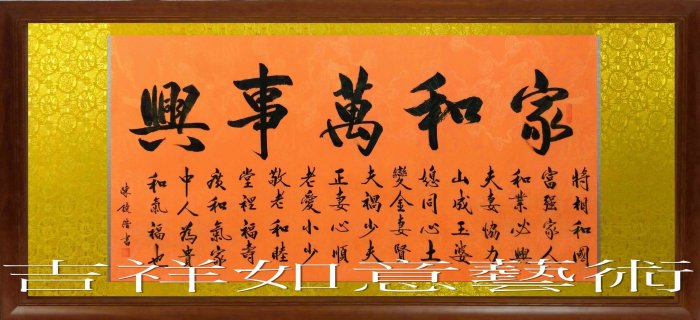 家和萬事興
將相和國
富強家人
和業必興
夫妻協力
山成玉婆
媳同心土
變金妻賢
夫禍少夫
正妻心順
老愛小少
敬老和睦
堂裡福壽
廣和氣家
中人為貴
和氣福也
吉祥如意藝術